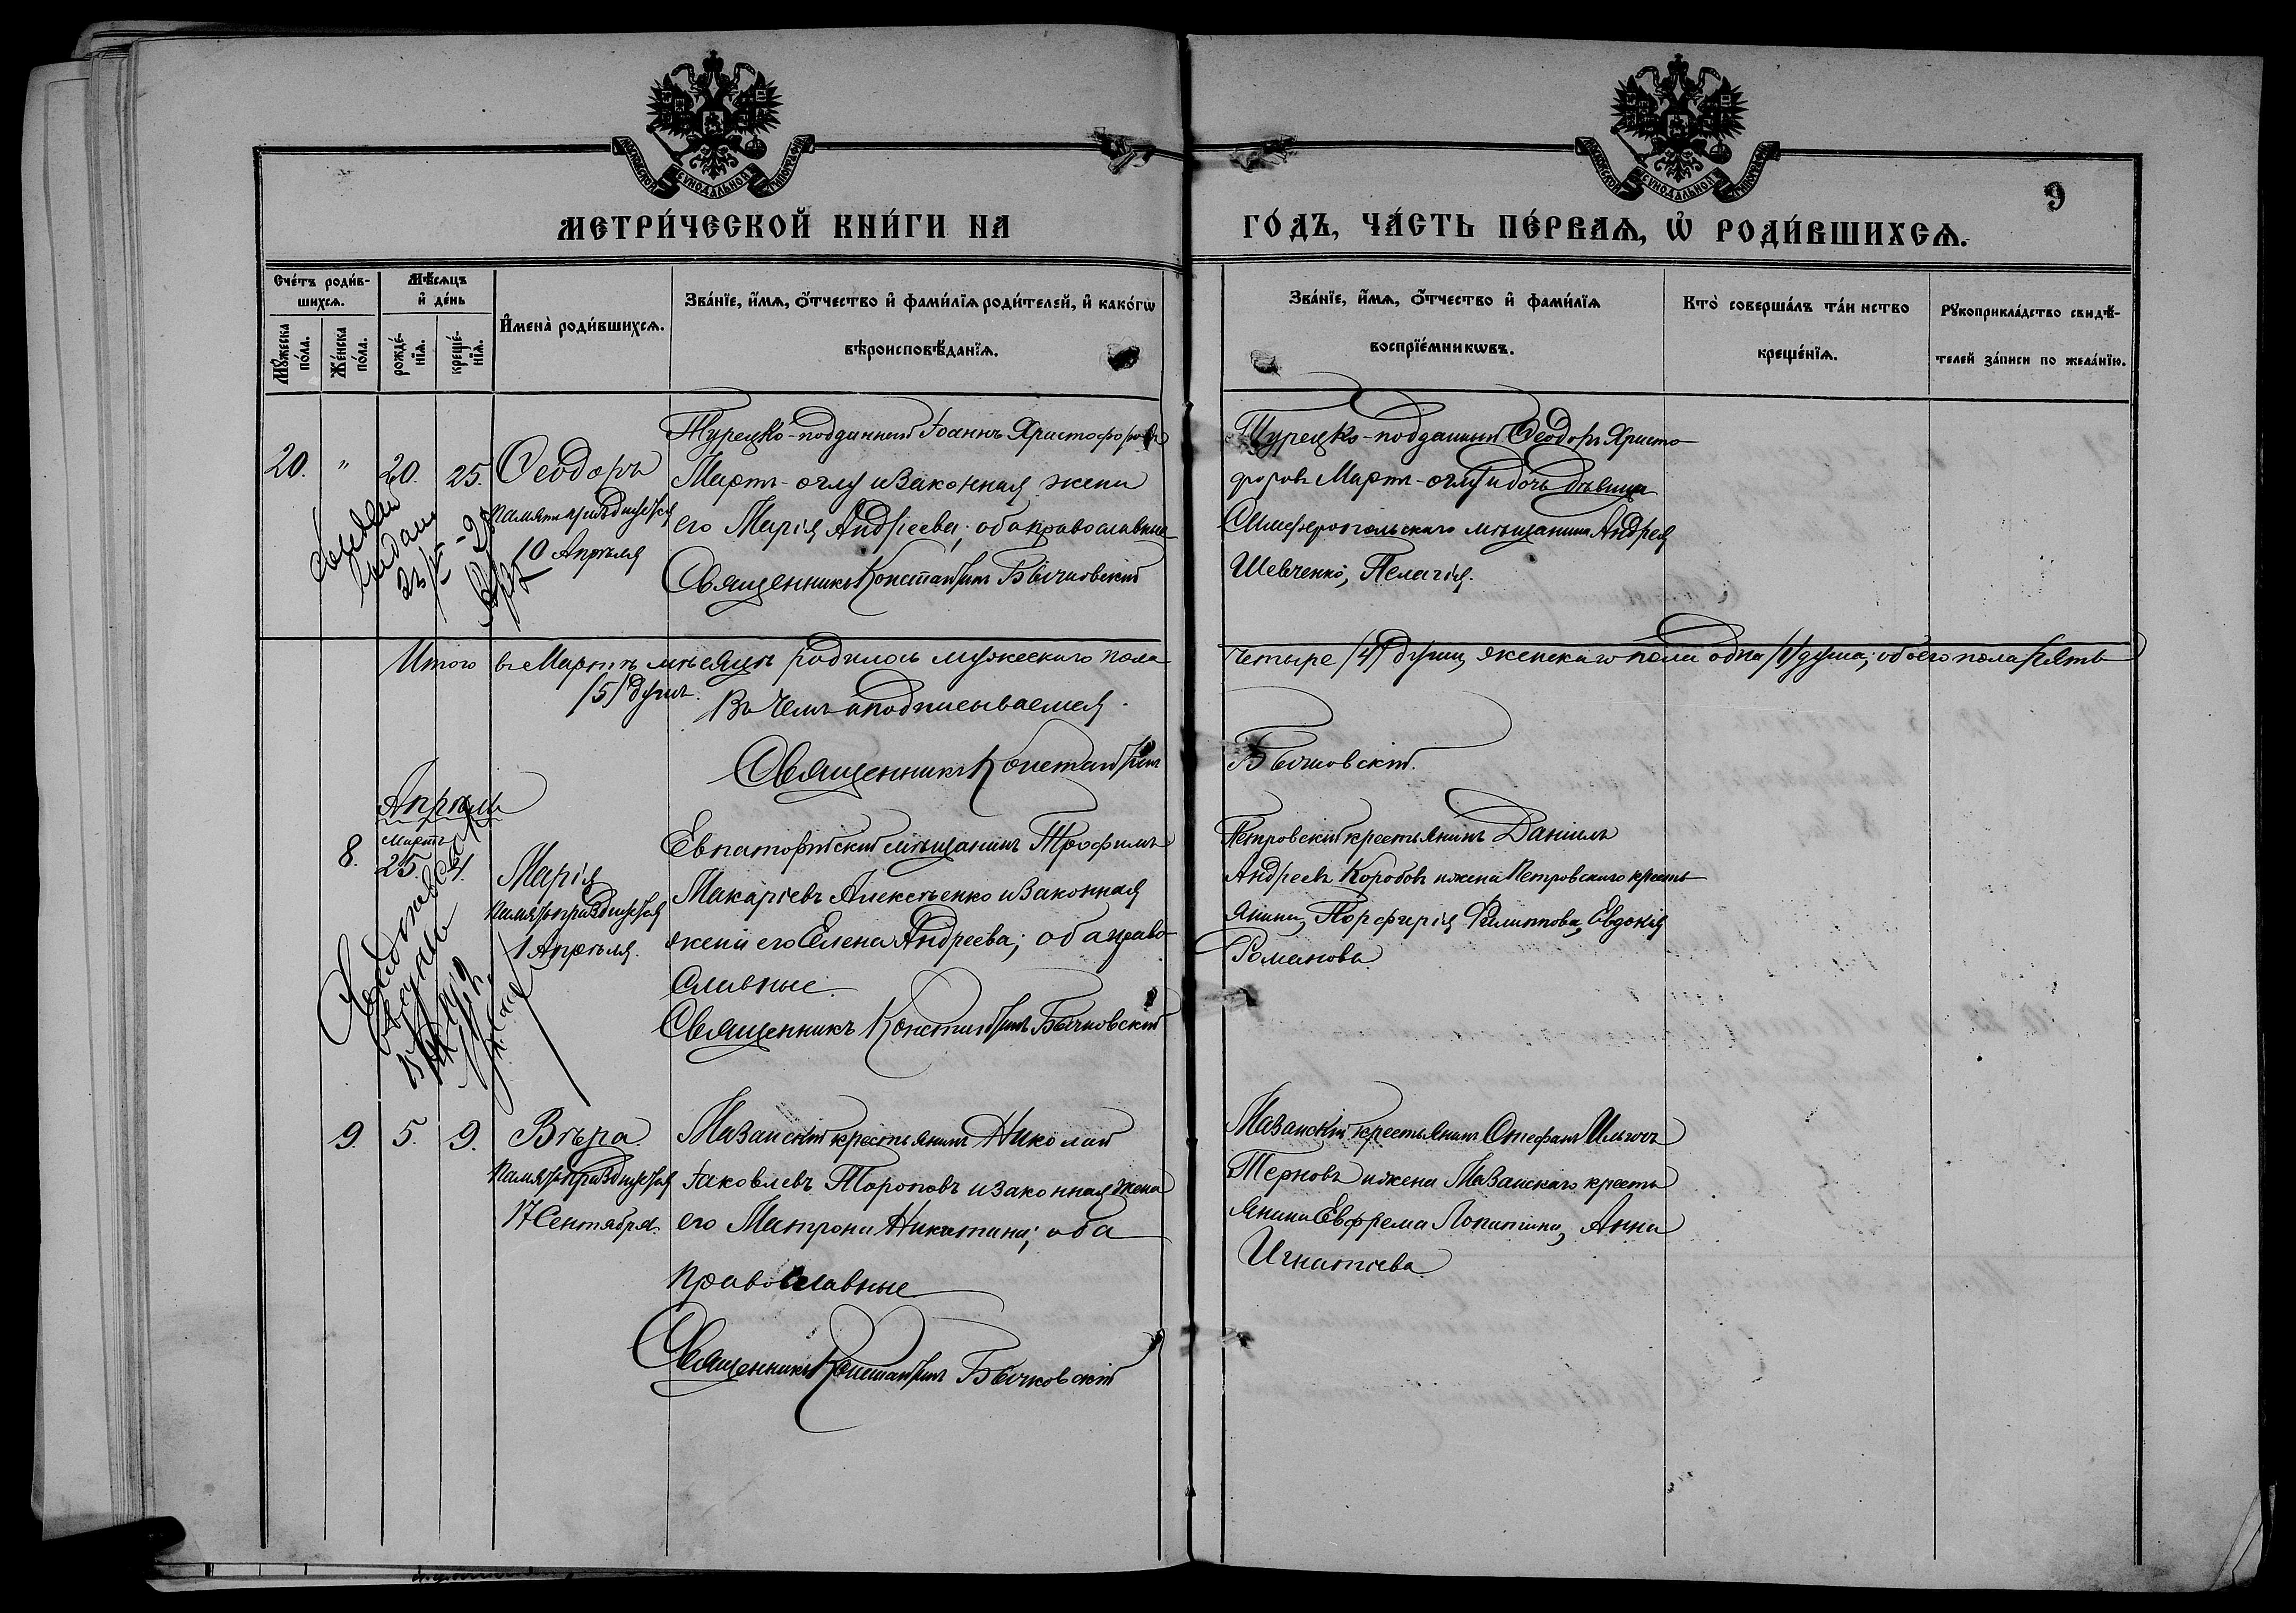 МОСКОВСКОЙ СѴНОДАЛЬНОЙ ТИПОГРАФІИ
МОСКОВСКОЙ СѴНОДАЛЬНОЙ ТИПОГРАФІИ
9
МЕТРИ́ЧЕСКОЙ КНИ́ГИ НА
ГО́ДЪ, ЧА́СТЬ ПЕ́РВАѦ, Ѡ҆ РОДИ́ВШИХСѦ.
Сче́тъ роди́в-
шихсѧ.
Мѣ́сѧцъ
и҆ де́нь
Мꙋ́жеска
по́ла.
Же́нска
по́ла.
рожде́-
нїѧ.
креще́-
нїѧ.
И҆мена̀ роди́вшихсѧ.
Зва́нїе, и҆́мѧ, о҆́тчество и҆ фами́лїѧ роди́телей, и҆ како́гѡ
вѣроисповѣ́данїѧ.
Зва́нїе, и҆́мѧ, о҆́тчество и҆ фами́лїѧ
воспрїе́мникѡвъ.
Кто̀ соверша́лъ та́инство
креще́нїѧ.
Рꙋкоприкла́дство свидѣ́-
телей за́писи по жела́нїю.
20. " 20. 25. Ѳеодоръ
память празднуется
10 Апрѣля
Турецко-подданный Іоаннъ Христофоровъ
Мартъ-оглу и законная жена
его Марія Андреева; оба православные
Священникъ Константинъ Бычковскій
Турецко-подданный Ѳеодоръ Христо
форовъ Мартъ-оглу и дочь дѣвица
Симферопольскаго мѣщанина Андрея
Шевченко, Пелагія.
Итого въ Мартѣ мѣсяцѣ родилось мужескаго пола четыре /4/ души, женскаго пола одна /1/ душа; обоего пола пять
/5/ душъ.
Въ чемъ и подписываемся.
Священникъ Константинъ Бычковскій.
Апрѣль
8. Мартъ
25. 4. Марія
память празднуется
1 Апрѣля.
Евпаторійскій мѣщанинъ Трофимъ
Макаріевъ Алексѣенко и законная
жена его Елена Андреева; оба право
славные.
Священникъ Константинъ Бычковскій
Петровскій крестьянинъ Даніилъ
Андреевъ Коробовъ и жена Петровскаго кресть
янина, Порфирія Филиппова, Евдокія
Романова.
9. 5. 9. Вѣра.
память празднуется
17 Сентября.
Мазанскій крестьянинъ Николай
Іаковлевъ Тороповъ и законная жена
его Матрона Никитина; оба
православные
Священникъ Константинъ Бычковскій
Мазанскій крестьянинъ Стефанъ Ильичъ
Терновъ и жена Мазанскаго кресть
янина Евфрема Лопатина, Анна
Игнатіева.